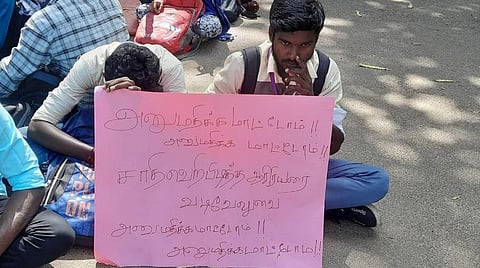 அனுமதிக்க மாட்டோம்!!
அனுமதிக்க மாட்டோம்!!
சாதிவெறிபிடித்த ஆசிரியரை
வடிவேலுவை
அனுமதிக்கமாட்டோம்!!
அனுமதிக்கமாட்டோம்!!